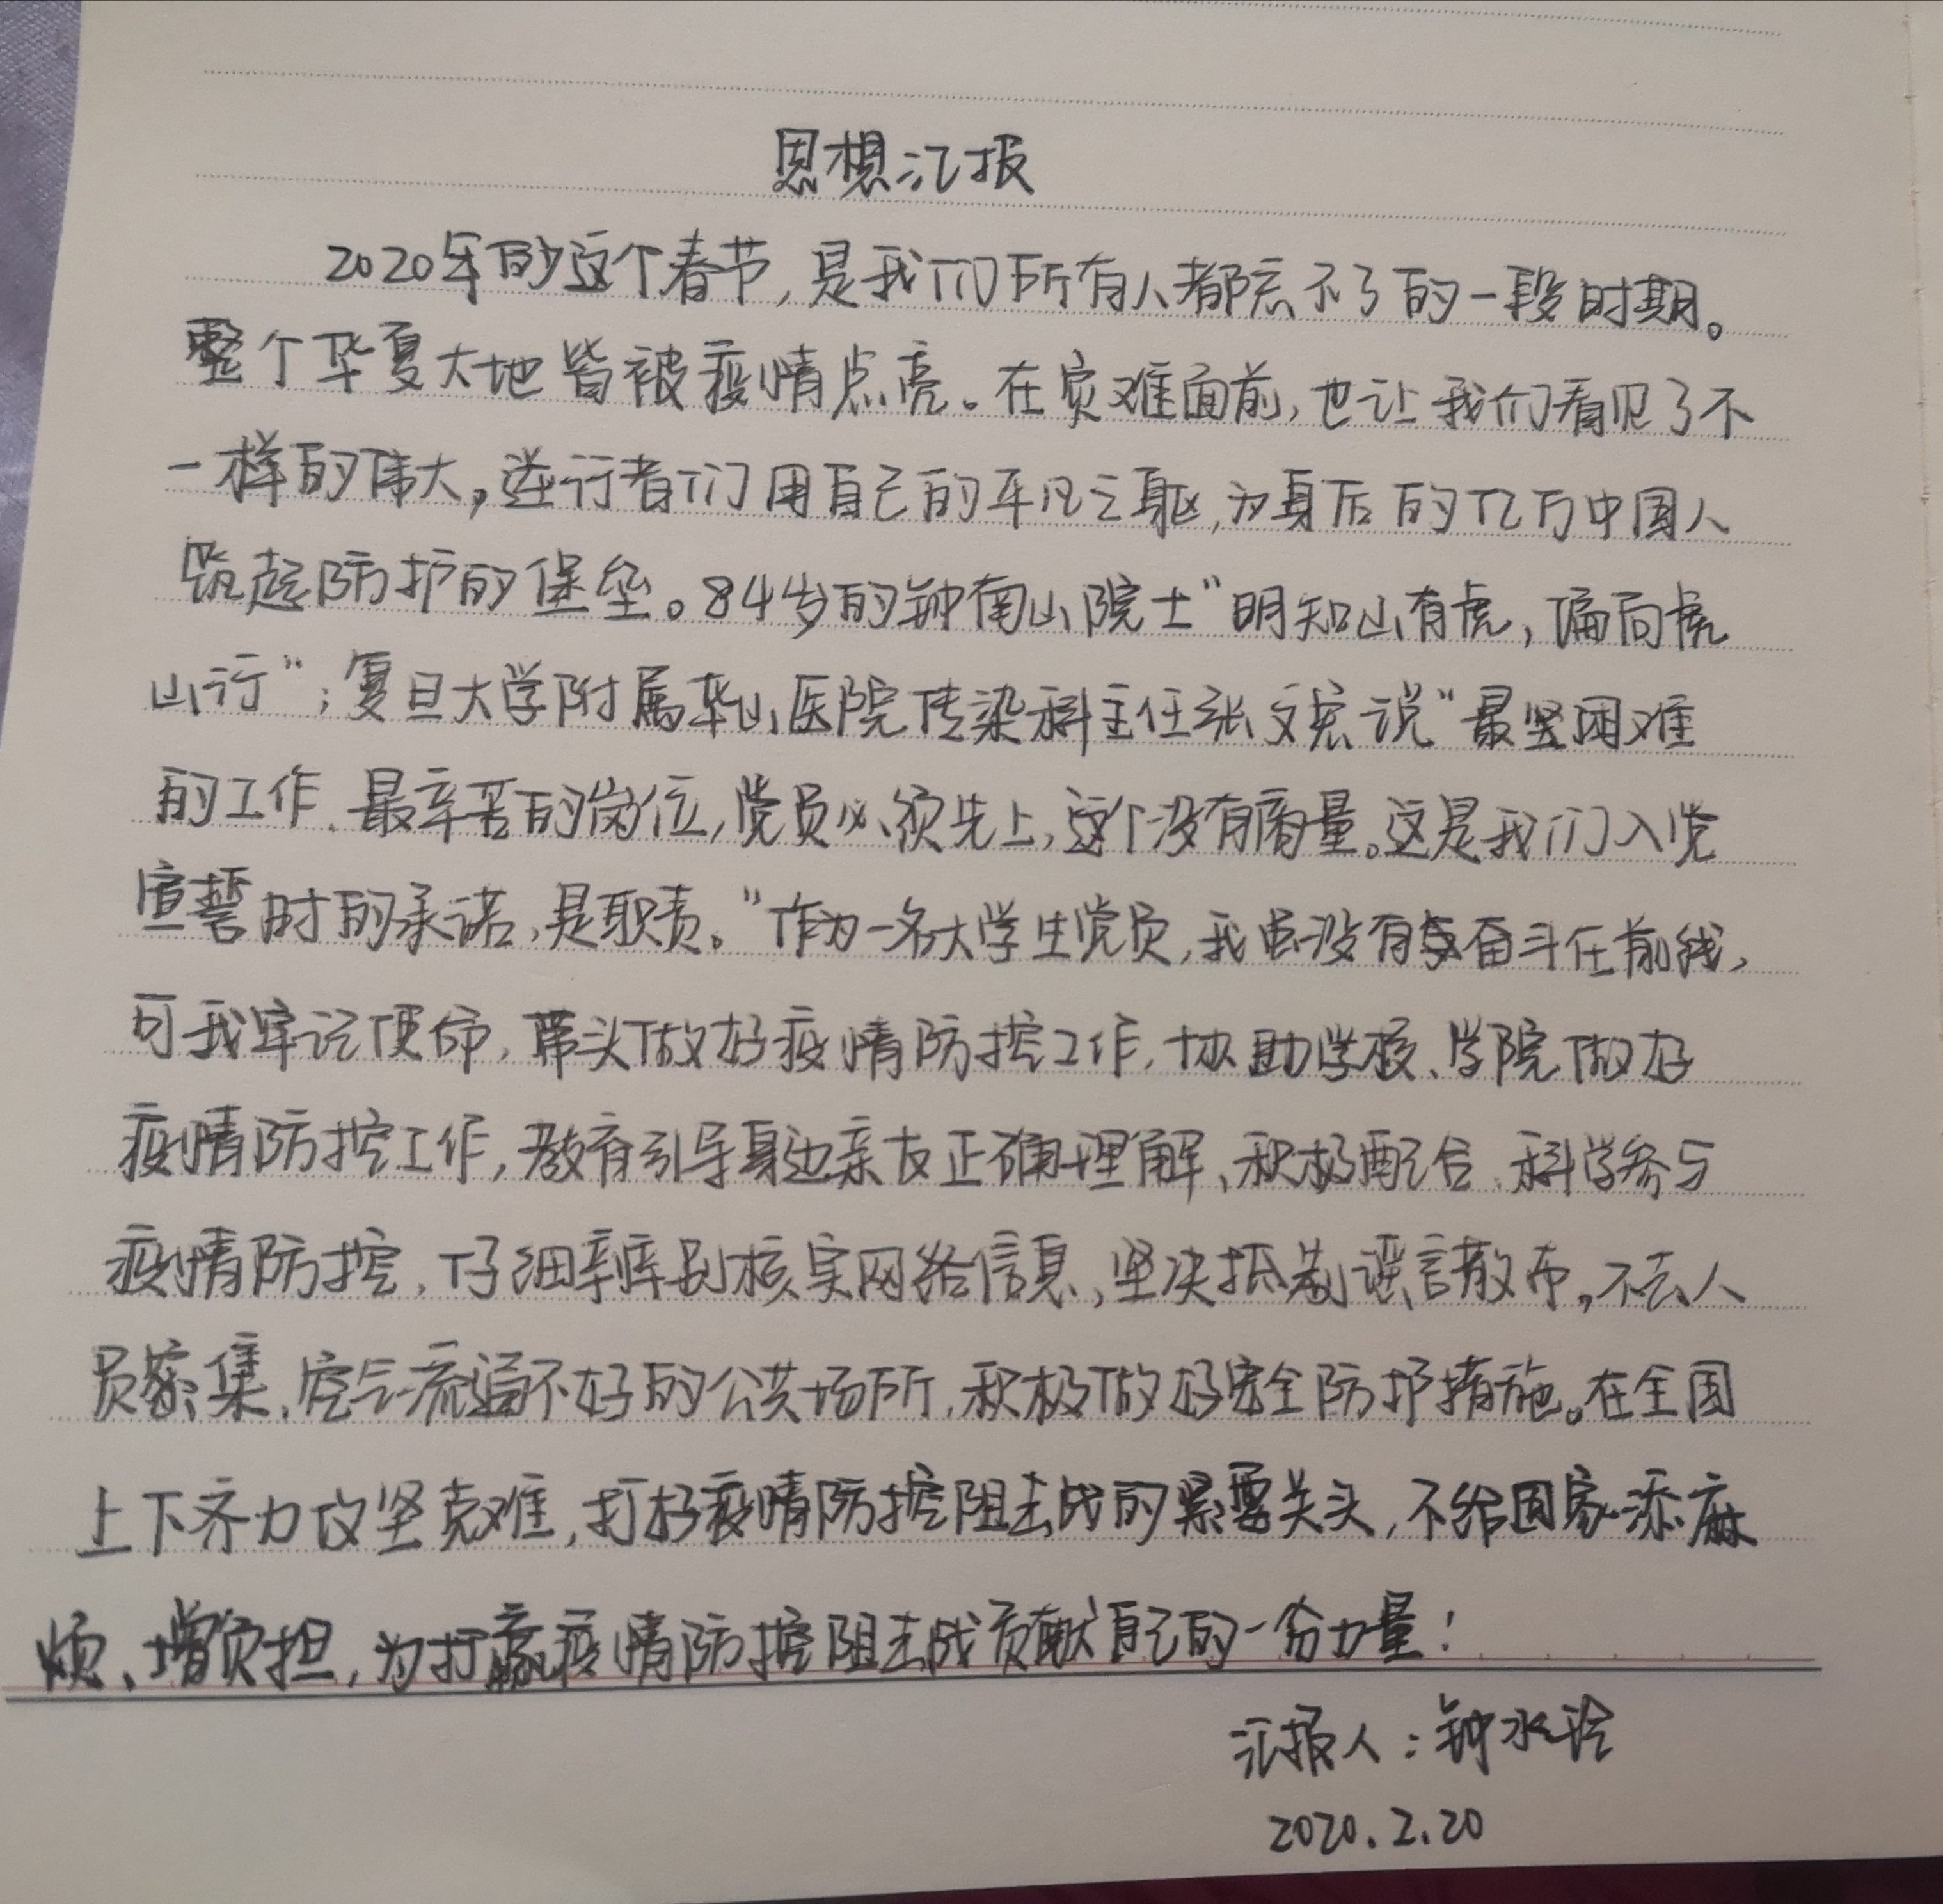 思想汇报
2020年的这个春节,是我们所有人都忘不了的一段时期。
整个华夏大地皆被疫情点亮。在灾难面前,也让我们看见了不
一样的伟大,逆行者们用自己的平凡之躯,为身后的亿万中国人
筑起防护的堡垒。84岁的钟南山院士“明知山有虎,偏向虎
山行”;复旦大学附属华山医院传染科主任张文宏说“最坚困难
的工作、最辛苦的岗位,党员必须先上,这个没有商量。这是我们入党
宣誓时的承诺,是职责。”作为一名大学生党员,我虽没有奋斗在前线,
可我牢记使命,带头做好疫情防控工作,协助学校、学院做好
疫情防控工作,教育引导身边亲友正确理解、积极配合、科学参与
疫情防控,仔细辨别核实网络信息,坚决抵制谣言散布,不去人
员密集、空气流通不好的公共场所,积极做好安全防护措施。在全国
上下齐力攻坚克难,打好疫情防控阻击战的紧要关头,不给国家添麻
烦、增负担,为打赢疫情防控阻击战贡献自己的一份力量!
汇报人:钟水玲
2020.2.20